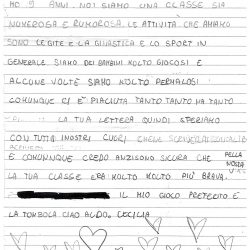 HO 9 ANNI. NOI SIAMO UNA CLASSE SIA
NUMEROSA E RUMOROSA. LE ATTIVITÀ CHE AMIAMO
SONO LE GITE E LA GINASTICA E LO SPORT IN
GENERALE SIAMO DEI BAMBINI MOLTO GIOCOSI E
ALCUNE VOLTE SIAMO MOLTO PERMALOSI
COMUNQUE CI È PIACIUTA TANTO TANTO MA TANTO
LA TUA LETTERA QUINDI SPERIAMO
CON TUTTI I NOSTRI CUORI CHE
E COMUNQUE CREDO ANZI SONO SICURA CHE
LA TUA CLASSE ERA MOLTO MOLTO PIÙ BRAVA. DELLA NOSTRA
IL MIO GIOCO PREFERITO È
LA TOMBOLA CIAO ALDO. CECILIA